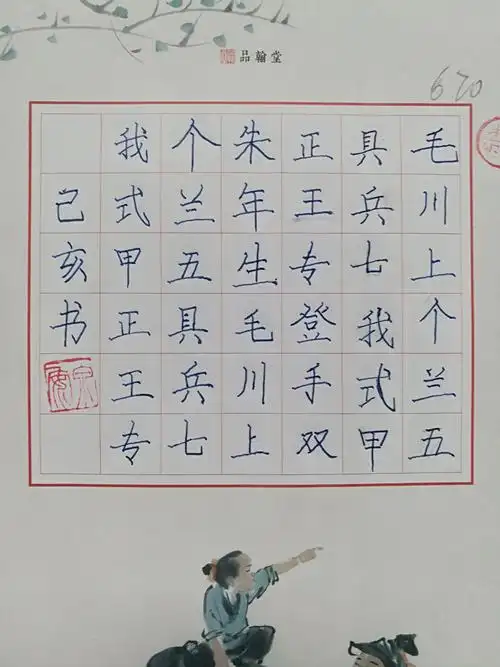 品翰堂
毛川上个兰五
具兵七我式甲
正王专登手双
朱年生毛川上
个兰五具兵七
我式甲正王专
己亥书